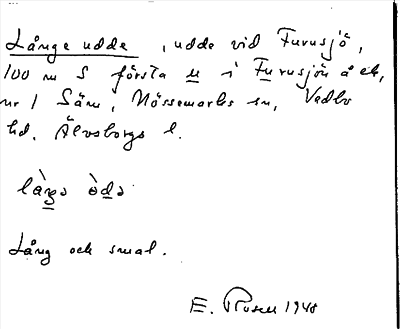 Långe udde, udde vid Furusjö,
100 m S första u i Furusjön å ek,
nr 1 Säm, Nössemarks sn, Vedbo
hd. Älvsborgs l.
làŋə òdə
Lång och smal.
E. Rosen 1940